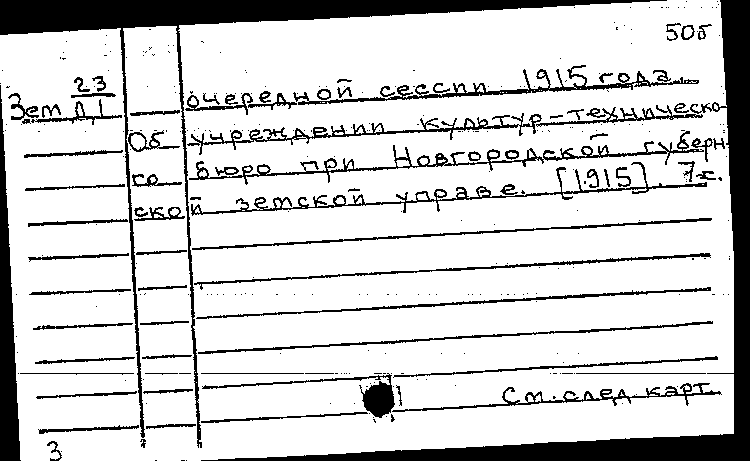 505
23
Зем Д,1 очередной сессии 1915 года
Об учреждении культур-техническо-
го бюро при Новгородской губерн-
ской земской управе. [1915]. 7с.
См. след. карт.
3